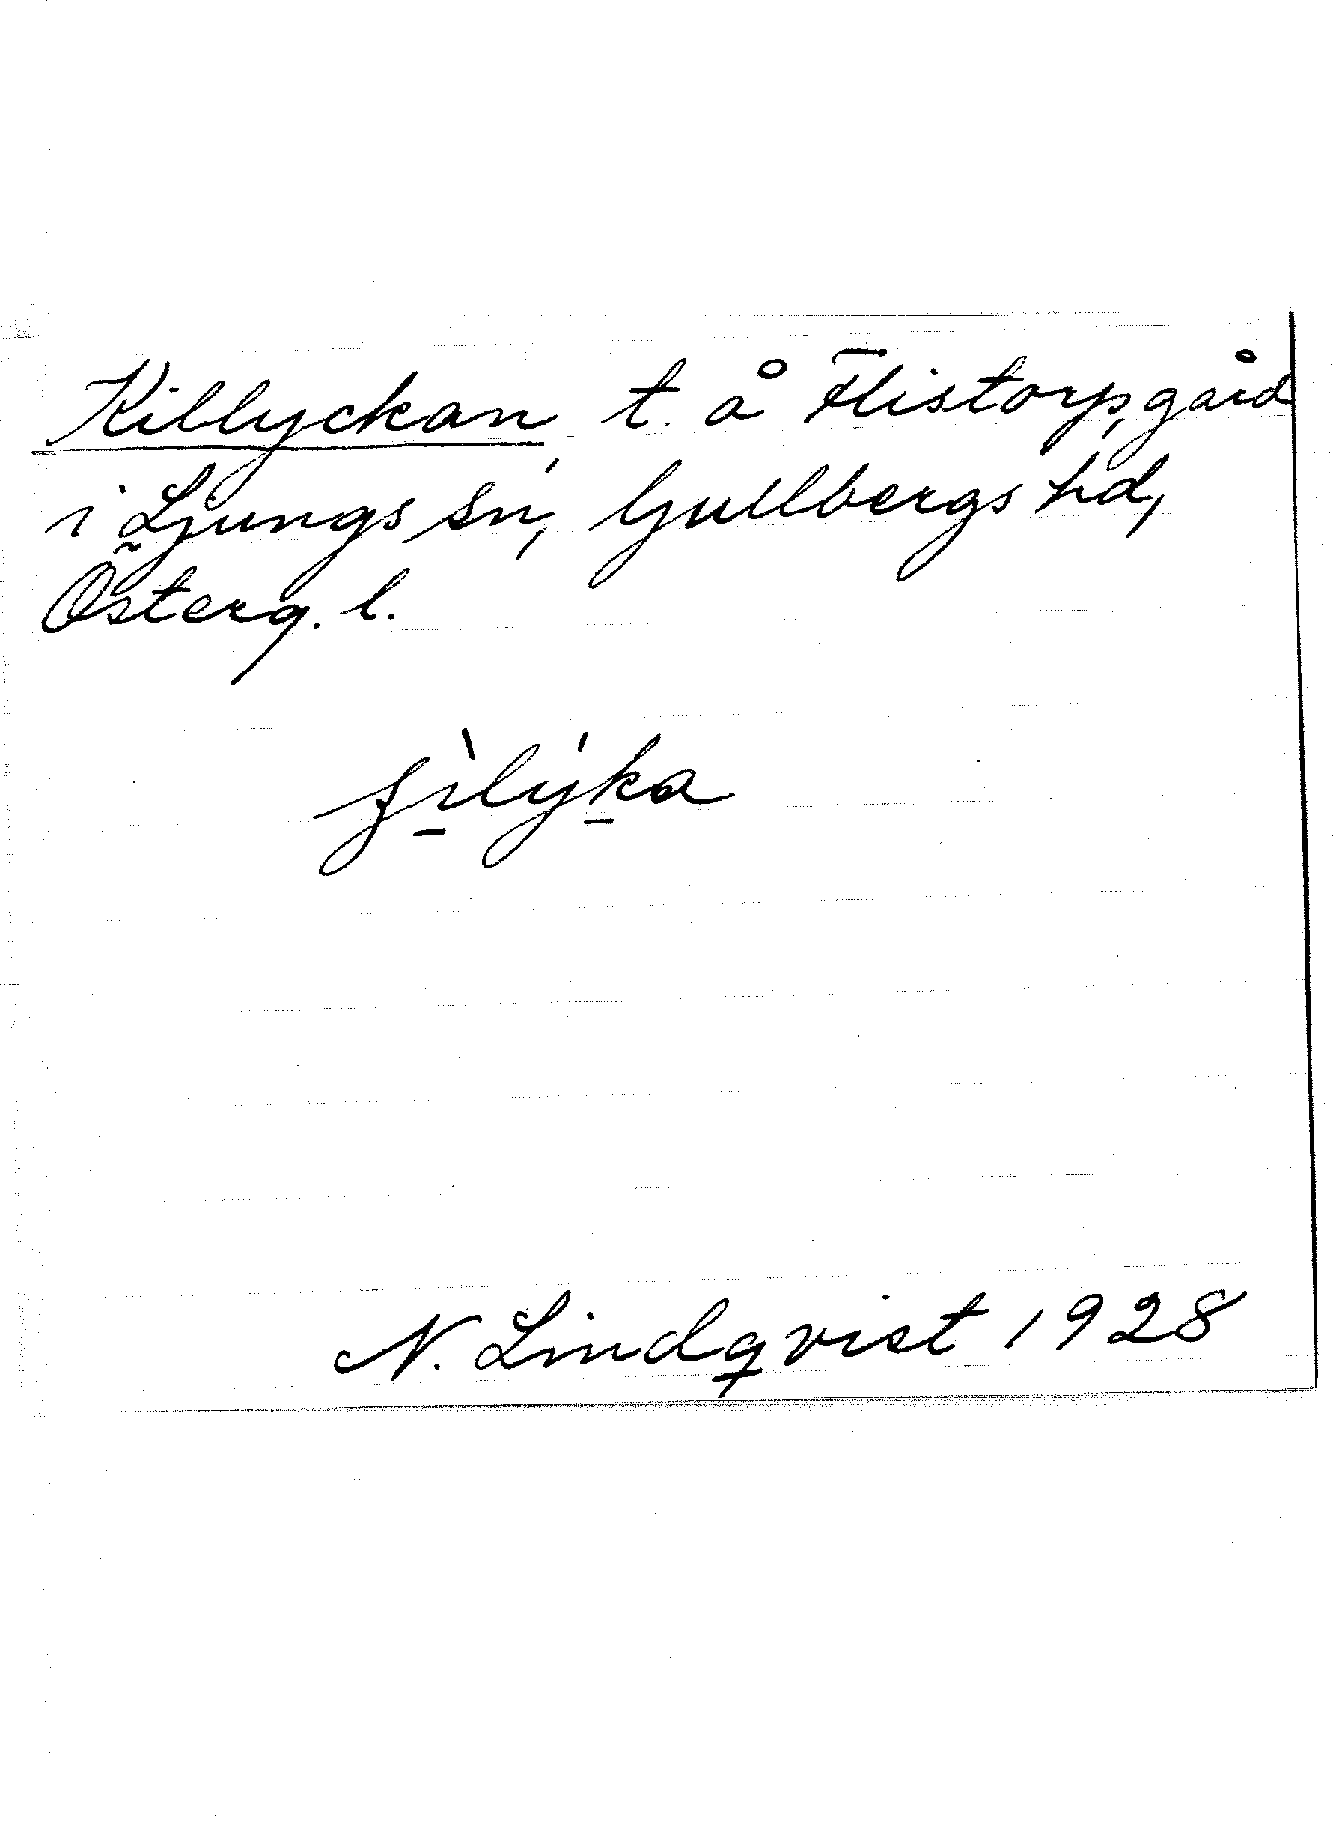 Killyckan, t. å Flistorp, gård
i Ljungs sn, Gullbergs hd,
Österg. l.
N. Lindqvist 1928